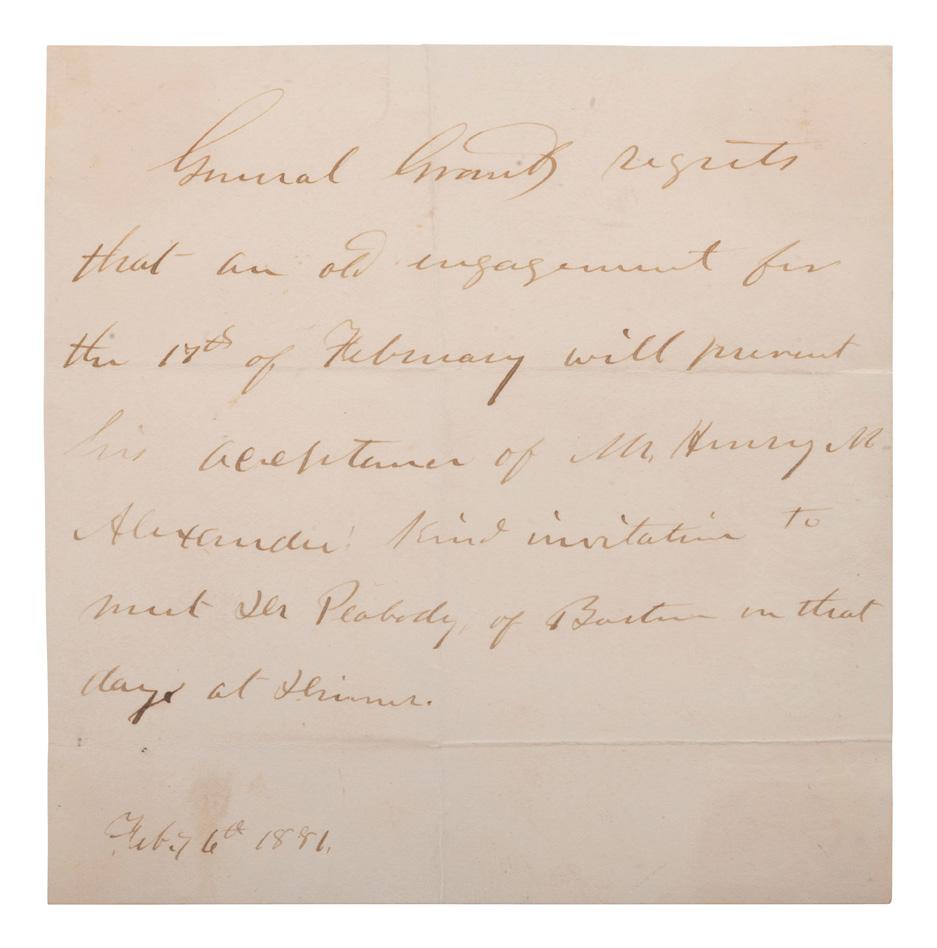 General Grant regrets
that an old engagement for
the 17th of February will prevent
his acceptance of Mr. Henry M.
Alexander' kind invitation to
meet Dr Peabody, of Boston on that
day at Dinner.
Feb.y 6th 1881.